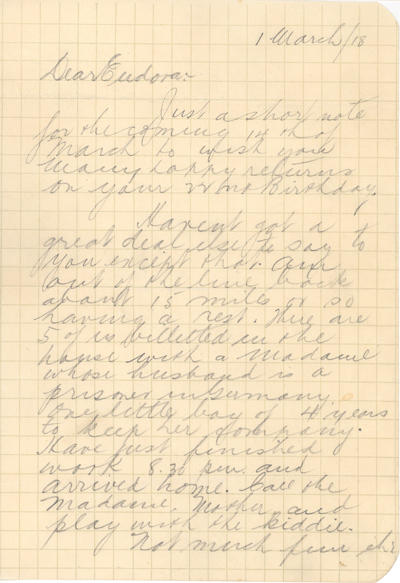 1 March/18
Dear Eudora:-
Just a short note
for the coming 14th of
March to wish you
many happy returns
on your Birthday.
Havent got a
great deal else to say to
you except that am
out of the line back
about 15 miles or so
having a rest. There are
5 of us billetted in the
house with a Madame
whose husband is a
prisoner in Germany,
one little boy of 4 years
to keep her company.
Have just finished
work 8.30 p.m. and
arrived home. Call the
Madame, Mother and
play with the kiddie.
Not much fun